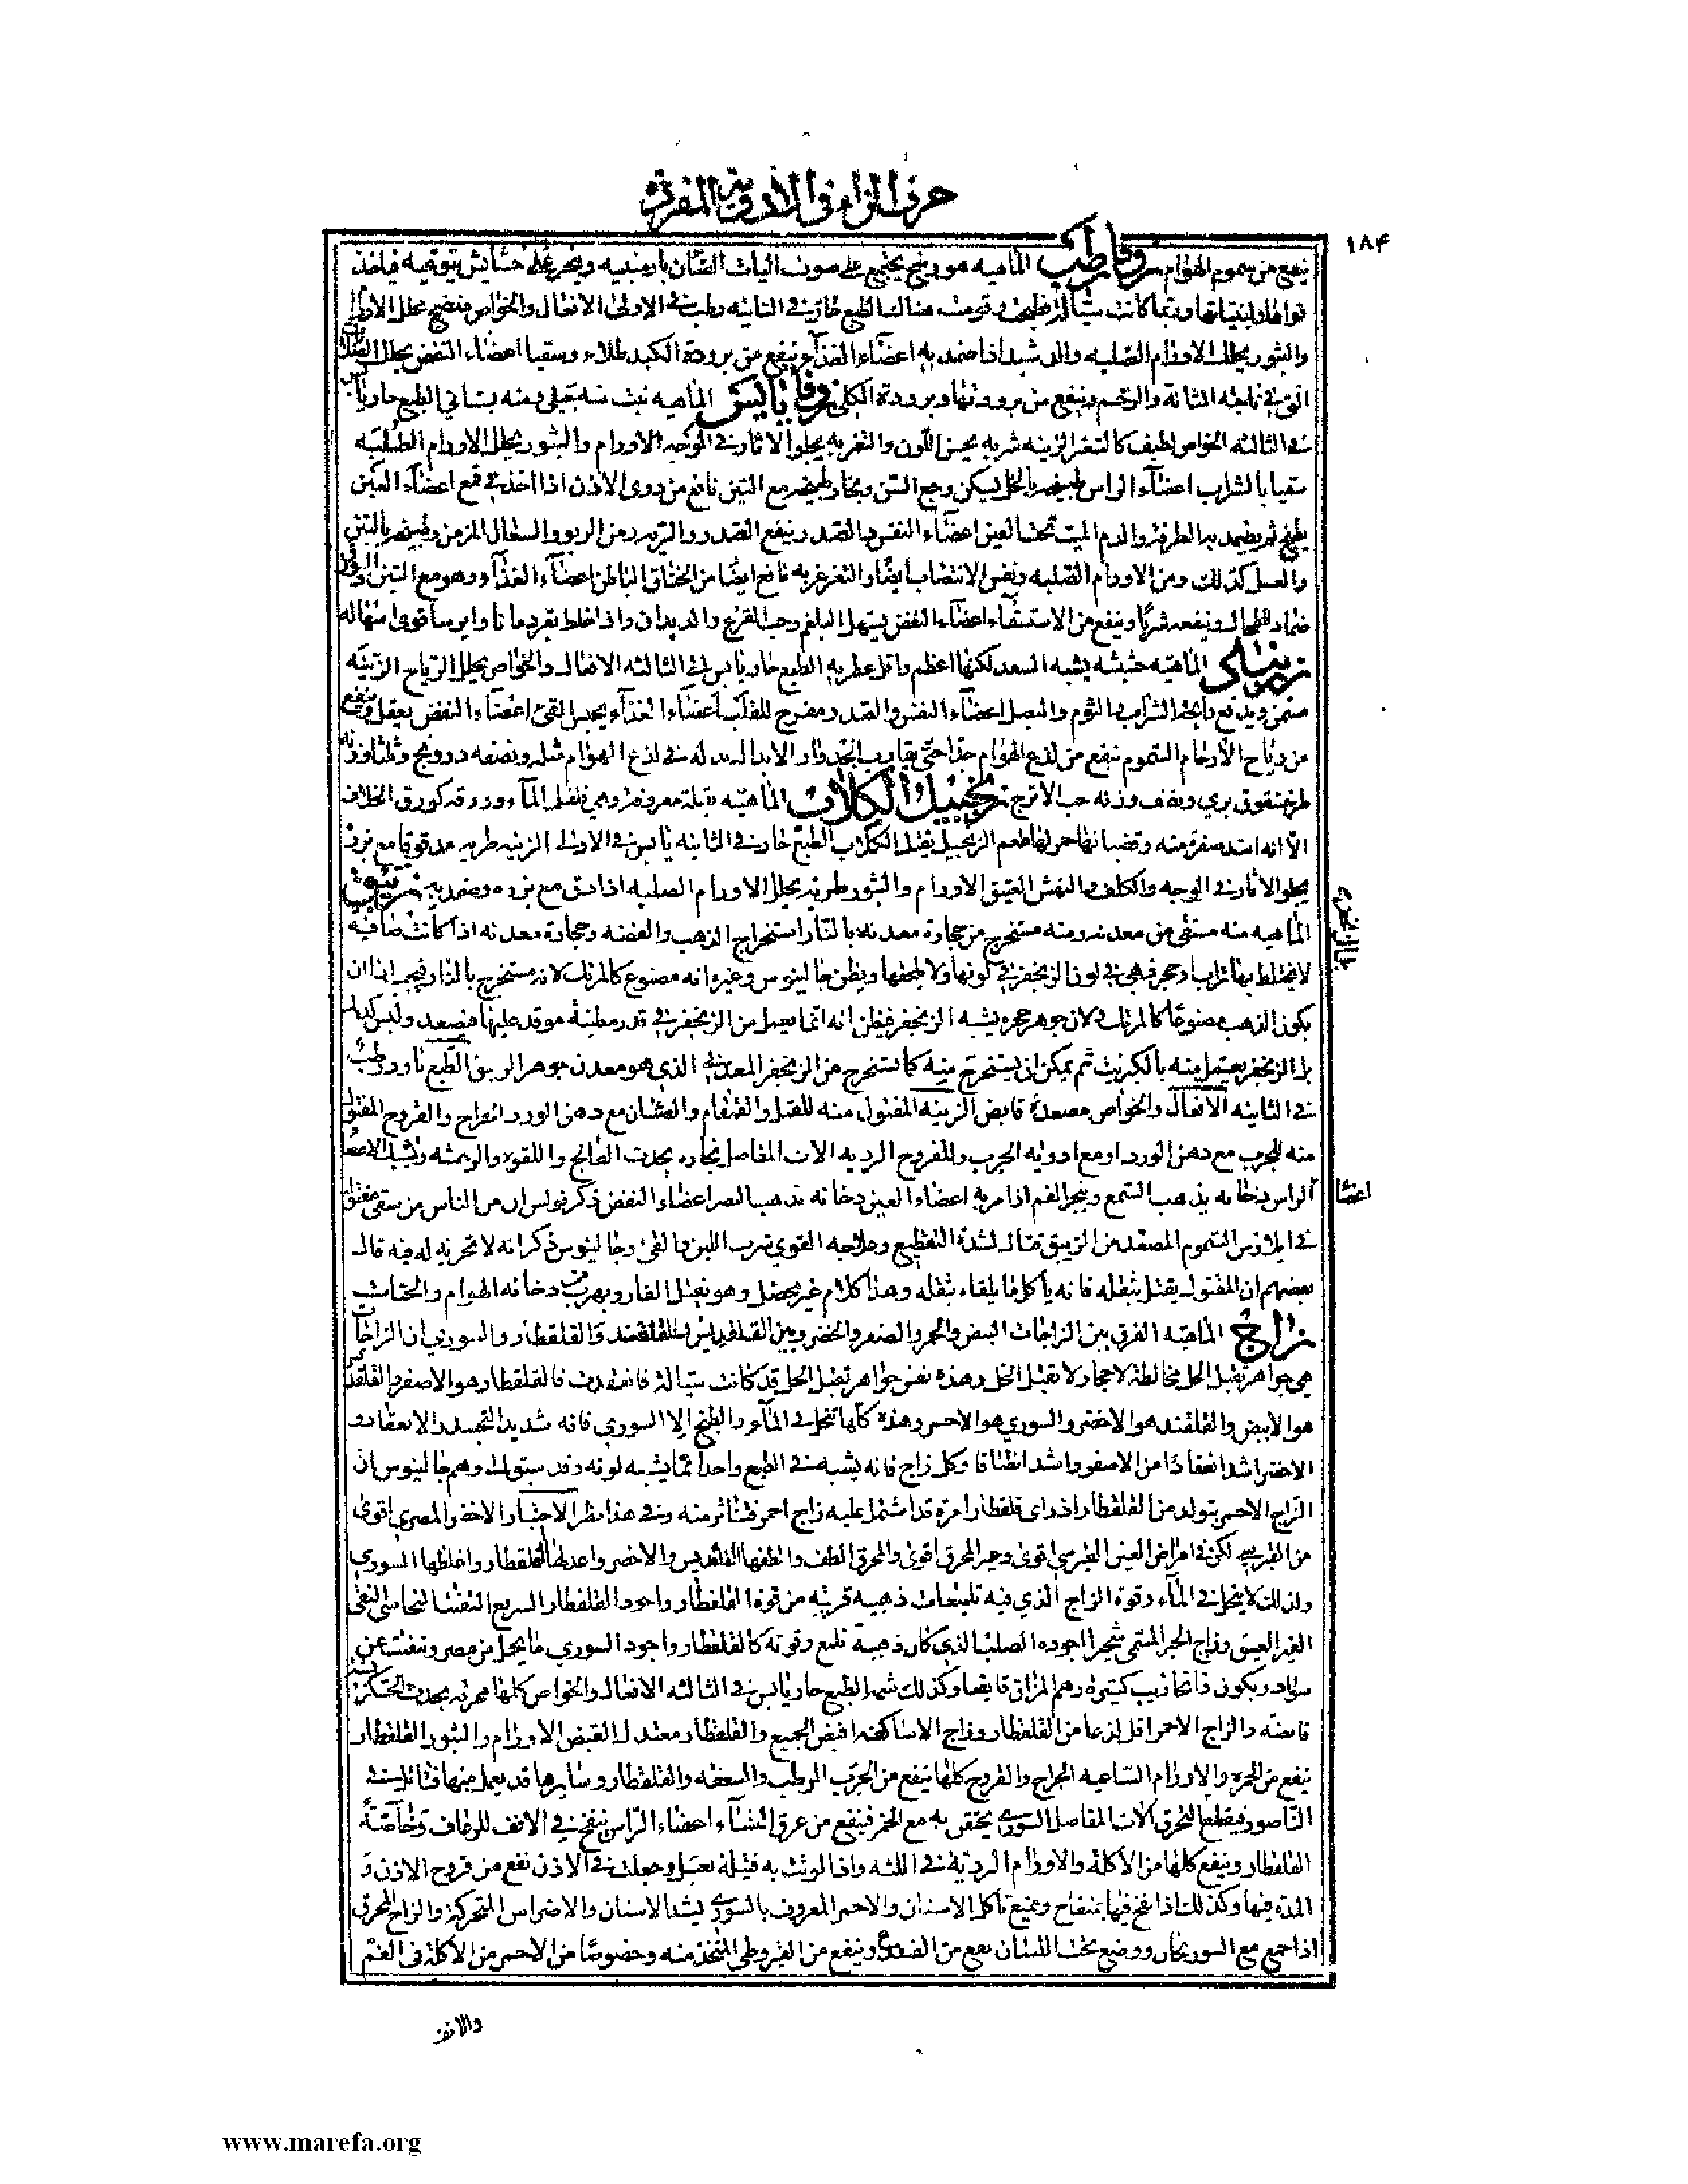 حرف الزاء في الادوية المفردة
١٨۴
ينفع من سموم الهوام زوفا رطب الماهيه هو وسخ يجتمع على صوف اليات الضأن بارمينيه وينجر على حشايش يتوعيه فياخذ
قواها ولبنياتها وربما كانت سيالة فطبخت وقومت هناك الطبع حار في الثانيه رطب في الاولى الافعال والخواص منضج محلل الاورام
والبثور يحلل الاورام الصلبه والدشبد اذا ضمد به اعضاء الغذاء ينفع من برودة الكبد طلاء وسقيا اعضاء النفض يحلل الصلابات
التى في ناحيه المثانة والرحم وينفع من برودتها وبرودة الكلى زوفا يابس الماهيه نبت منه جبلي ومنه بستاني الطبع حار يابس
في الثالثه الخواص لطيف كالصعتر الزينه شربه يحسن اللون والتغمر به يجلو الاثار في الوجه الاورام والبثور يحلل الاورام الصلبه
سقيا بالشراب اعضآء الراس طبيخه بالخل يسكن وجع السن وبخار طبيخه مع التين نافع من دوى الاذن اذا اخذ في قمع اعضآء العين
يطبخ ثم يضمد به الطرفة والدم الميت تحت العين اعضاء النفس والصدر ينفع الصدر والرية من الربو والسعال المزمن وطبيخه بالتين
والعسل كذلك ومن الاورام الصلبه ونفس الانتصاب ايضا والتغرغر به نافع ايضا من الخناق الباطن اعضآء الغذآء وهو مع التين والبورق
ضماد للطحال وينفعه شربا وينفع من الاستسقاء اعضاء النفض يسهل البلغم وحب القرع والديدان واذا خلط بقردمانا وايرسا قوى اسهاله
زرنباد الماهيه حشيشه يشبه السعد لكنها اعظم واقل عطريه الطبع حار يابس في الثالثه الافعال والخواص يحلل الرياح الزينه
مسمن ويدفع رايحة الشراب والثوم والبصل اعضاء النفس والصدر مفرح للقلب اعضاء الغذآء يحبس القئ اعضاء النفض يعقل وينفع
من رياح الارحام السموم ينفع من لدغ الهوام جدا حتى يقارب الجدوار الابدال بدله في لدغ الهوام مثله ونصفه درونج وثلثا وزنه
طرخشقوق بري ونصف وزنه حب الاترج زنجبيل الكلاب الماهيه بقلة معروفة وهي فلفل المآء وورقه كورق الخلاف
الا انه اشد صفرة منه وقضبانها حمر لها طعم الزنجبيل يقتل الكلاب الطبع حار في الثانيه يابس في الاولى الزينه طريه مدقوقا مع بزره
يجلو الاثار في الوجه والكلف والنمش العتيق الاورام والبثور طريه يحلل الاورام الصلبه اذا دق مع بزره وضمد به زيبق
الماهيه منه مستقى من معدنه ومنه مستخرج من حجارة معدنه بالنار استخراج الذهب والفضه وحجارة معدنه اذا كانت صافيه
لا يختلط بها تراب او حجر فهي في لون الزنجفر في كونها ولا يلحقها ويظن جالينوس وغيره انه مصنوع كالمرتك لانه مستخرج بالنار فيجب اذا ان
يكون الذهب مصنوعا كالمرتك ولان جوهر حجره يشبه الزنجفر فيظن انه انما يعمل من الزنجفر في قدر مطينة موقد عليها فصعد وليس كذلك
بل الزنجفر يعمل منه بالكبريت ثم يمكن ان يستخرج منه كما يستخرج من الزنجفر المعدني الذي هو معدن جوهر الزيبق الطبع بارد رطب
في الثانيه الافعال والخواص مصعده قابض الزينه المقتول منه للقمل والقمقام والصئبان مع دهن الورد الجراح والقروح المقتول
منه للجرب مع دهن الورد او مع ادويه الجرب وللقروح الرديه الات المفاصل بخاره يحدث الفالج واللقوه والرعشه وتشبك الاعضا
اعضا الراس دخانه يذهب السمع وينجر الفم اذا مر به اعضاء العين دخانه يذهب البصر اعضاء النفض ذكر فولس ان من الناس من سقى مقتوله
في ايلاوس السموم المصعد من الزيبق قتال لشدة التقطيع وعلاجه القوي شرب اللبن والقئ وجالينوس ذكر انه لا تجربه له فيه قال
بعضهم ان المقتول يقتل بثقله فانه ياكل ما يلقاه بثقله وهذا كلام غير محصل وهو يقتل الفار ويهرب من دخانه الهوام والحيات
زاج الماهيه الفرق بين الزاجات البيض والحمر والصفر والخضر وبين القلقديس والقلقند والقلقطار والسوري ان الزاجات
هي جواهر تقبل الحل مخالطة لاحجار لا تقبل الحل وهذه نفس جواهر تقبل الحل قد كانت سيالة فانعقدت فالقلقطار هو الاصفر والقلقديس
هو الابيض والقلقند هو الاخضر والسوري هو الاحمر وهذه كلها تنحل في المآء والطبخ الا السوري فانه شديد التجسد والانعقاد و
الاخضر اشد انعقادا من الاصفر واشد انطباقا وكل زاج فانه يشبه في الطبع واحدا مما يشبه لونه وقد سبق لك وهم جالينوس ان
الزاج الاحمر يتولد من القلقطار اذ راى قلقطارا مرة قد اشتمل عليه زاج احمر فتناثر منه وفى هذا نظر الاختيار الاخضر المصري اقوى
من القبرسي لكن في امراض العين القبرسي اقوى وغير المحرق اقوى والمحرق الطف والطفها القلقديس والاخضر واعدلها القلقطار واغلظها السوري
ولذلك لا ينحل في المآء وقوة الزاج الذي فيه تلميعات ذهبيه قريبة من قوة القلقطار واجود القلقطار السريع التفتت النحاسى النقى
الغير العتيق وزاج الحبر المسمى شحيرا اجوده الصلب الذي كان ذهبية تلمع وقوته كالقلقطار واجود السوري ما يحمل من مصر ويتفتت عن
سواد ويكون ذا تجاويف كثيرة زهم المذاق قابضا وكذلك شمه الطبع حار يابس في الثالثه الافعال والخواص كلها محرقه يحدث الخشكريشه
قابضه والزاج الاحمر اقل لذعا من القلقطار وزاج الاساكفه اقبض الجميع والقلقطار معتدل القبض الاورام والبثور القلقطار
ينفع من الحمره والاورام الساعيه الجراح والقروح كلها ينفع من الجرب الرطب والسعفه والقلقطار وسايرها قد يعمل منها فتايل في
الناصور فيقطع التحرق الات المفاصل السوري يحقن به مع الخمر فينفع من عرق النساء اعضاء الراس ينفخ في الانف للرعاف وخاصة
القلقطار وينفع كلها من الاكلة والاورام الرديه في اللثه واذا لوثت به فتيلة بعسل وجعلت في الاذن نفع من قروح الاذن و
المدة فيها وكذلك اذا نفخ فيها بمنفاخ ويمنع تاكل الاسنان والاحمر المعروف بالسوري يشد الاسنان والاضراس المتحركة والزاج المحرق
اذا جمع مع السورنجان ووضع تحت اللسان نفع من الضفدع وينفع من القيروطي المتخذ منه وخصوصا من الاحمر من الاكلة في الفم
والانف
www.marefa.org